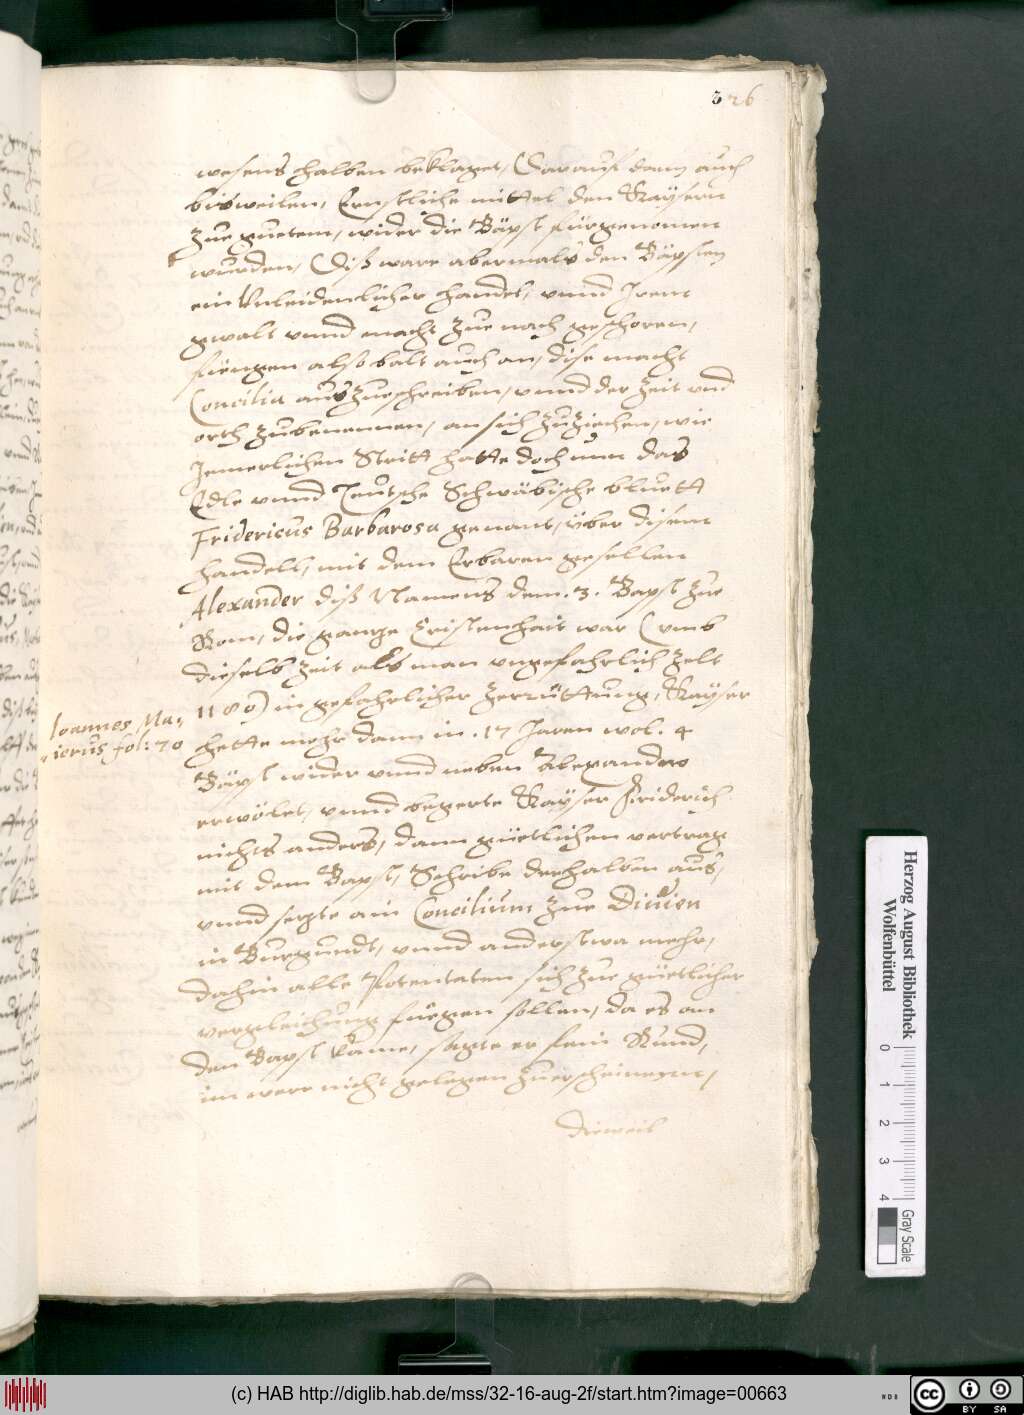 326
wesens halben beklaget, Darauf dann auch
bisweilen, Ernstliche mittel den Kaÿsern
zue guetem, wider die Bäpst fürgenomen
wurden, Diß ware abermals den Bäpsten
ein Vnleidenlicher handel, vnnd Irem
gwalt vnnd macht zue nach geschoren,
fiengen also balt auch an, dise macht
Concilia auszueschreiben, vnnd der Zeit vnd
orth zubenennen, an sich zuziehen, wie
Jemerlichen Stritt hatte doch nun das
Edle vnnd Teutsche Schwäbische bluett
Fridericus Barbarosa genant, über disem
handell, mit dem Erbaren gesellen
Alexander diß Namens dem .3. Bapst zue
Rom, die gantze Cristenhait war (vmb
dieselb Zeit als man vngefahrlich zelt
1180) in gefahrlicher Zerrüttung, Kaÿser
hette mehr dann in .17 Jaren wol. 4
Bäpst wider vnnd neben Alexandro
erwölet, vnnd begerte Kaÿser Friderich
nichts anders, dann güetlichen vertrag
mit dem Bapst, Schribe derhalben aus,
vnnd setzte ain Concilium zue Diuion
in Burgundt, vnnd anderstwa mehr,
dahin alle Potentaten sich zue güetlicher
vergleichung fuegen sollen, da es an
den Bapst kame, sagte er fein Rund,
im were nicht gelegen zuerscheinenn,
dieweil
Ioannes Ma-
ierus fol: 70
Herzog August Bibliothek
Wolfenbüttel
0 1 2 3 4
Gray Scale
(c) HAB http://diglib.hab.de/mss/32-16-aug-2f/start.htm?image=00663
WDB
cc BY SA